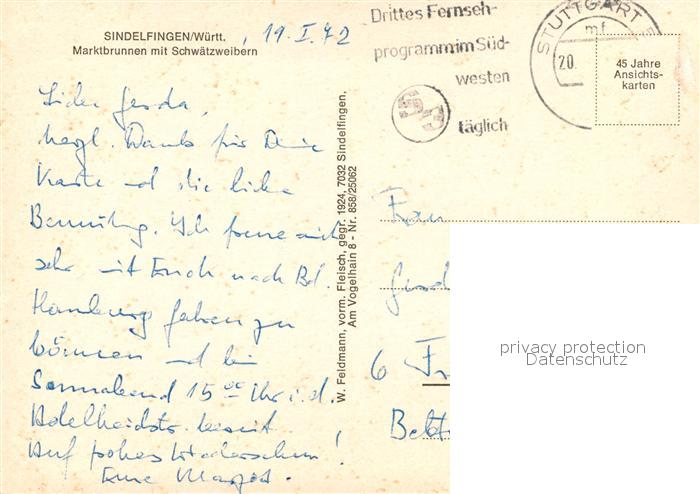 SINDELFINGEN/Württ.
Marktbrunnen mit Schwätzweibern
, 19. I. 72
Liebe Gerda,
herzl. Dank für Deine
Karte und die liebe
Bemühung. Ich freue mich
sehr mit Euch nach Bd.
Homburg fahren zu
können und bin
Sonnabend 15 00 Uhr i. d.
Adelheidstr. bereit
Auf frohes Wiedersehen!
Eure Margot.
W. Feldmann, vorm. Fleisch, gegr. 1924, 7032 Sindelfingen,
Am Vogelhain 8 - Nr. 858/25062
Drittes Fernseh-
programm im Süd-
westen
täglich
STUTTGART
mf
20.
45 Jahre
Ansichts-
karten
Frau
6 Fr
privacy protection
Datenschutz